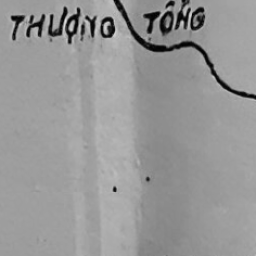 THƯỢNG TỔNG